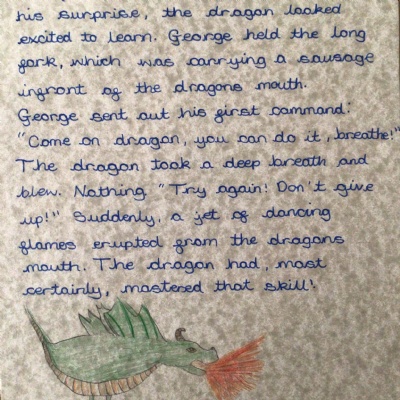 his surprise, the dragon looked
excited to learn. George held the long
fork, which was carrying a sausage
infront of the dragons mouth.
George sent out his first command:
"Come on dragon, you can do it, breathe!"
The dragon took a deep breath and
blew. Nothing "Try again! Don't give
up!" Suddenly, a jet of dancing
flames erupted from the dragons
mouth. The dragon had, most
certainly, mastered that skill!